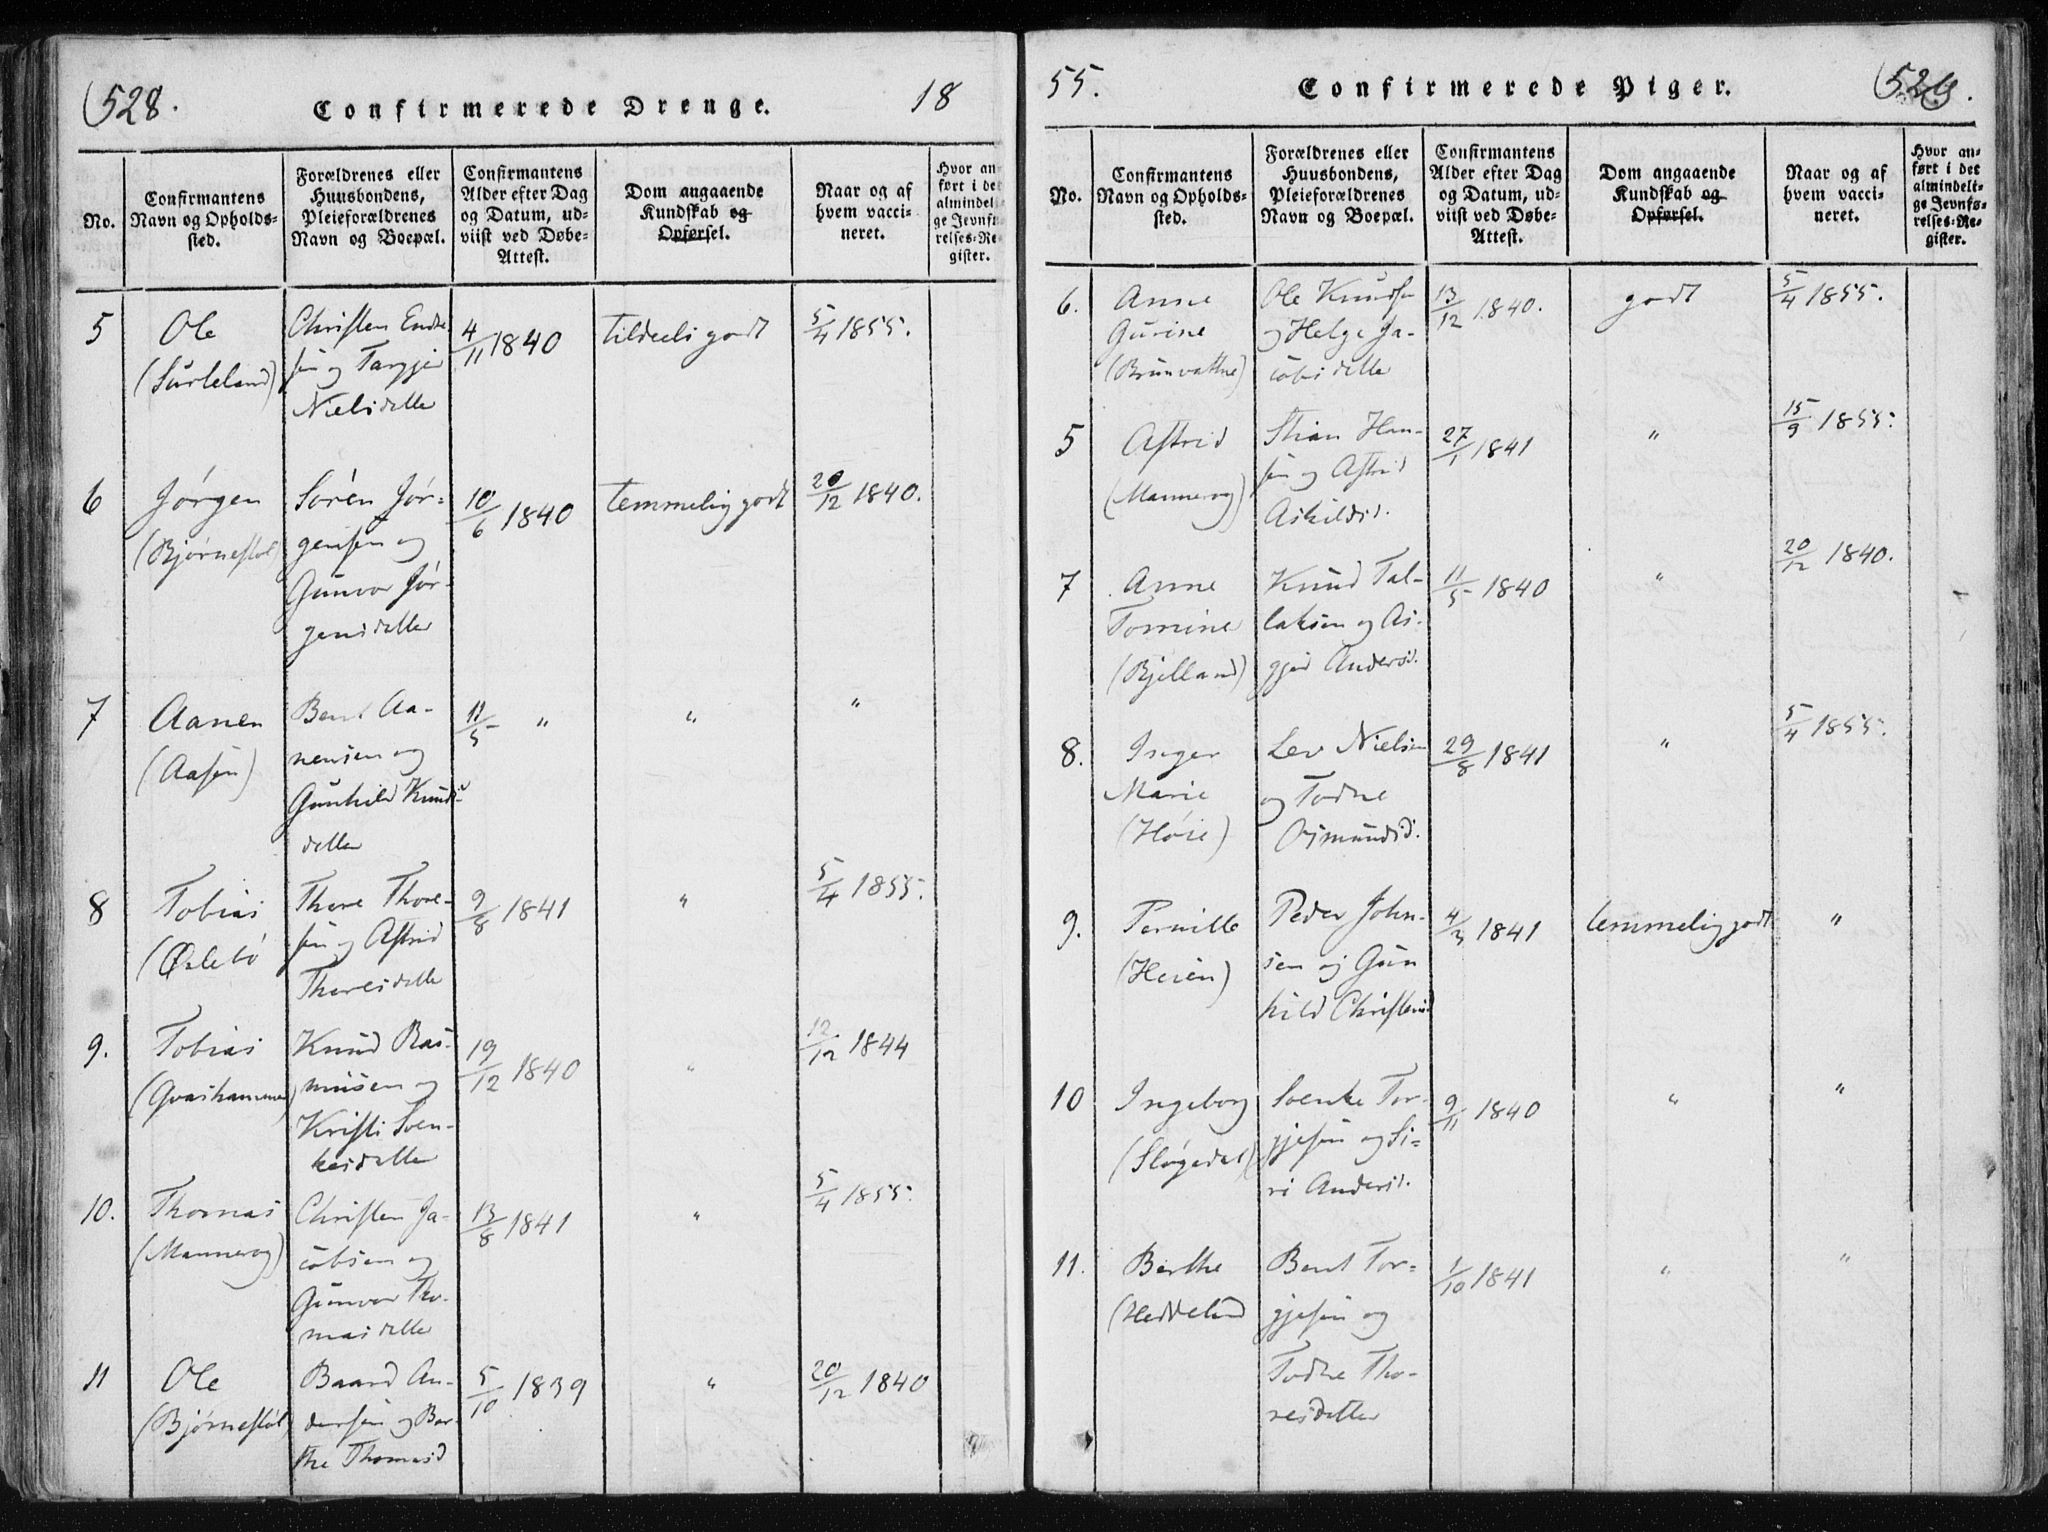 528.
Confirmerede Drenge.
18
No.
Confirmantens Navn og Opholds-sted.
Forældrenes eller Huusbondens, Pleieforældrenes Navn og Boepæl.
Confirmantens Alder efter Dag og Datum, ud-viist ved Døbe-Attest.
Dom angaaende Kundskab og Opførsel.
Naar og af hvem vacci-neret.
Hvor an-ført i det almindeli-ge Jevnfø-relses-Re-gister.
5
Ole
(Surteland)
Christen Endre
sen og Targjer
Nielsdatter
4/11 1840
tildeels godt
5/4 1855.
6
Jørgen
(Bjørnestøl
Sørèn Jør-
gensen og
Gunvor Jør-
gensdatter
10/6 1840
temmelig godt
20/12 1840.
7
Aanen
(Aasen)
Bent Aa-
nensen og
Gunhild Knuds
datter
11/5 "
"
"
8
Tobias
(Øslebö
Thore Thore-
sen og Astrid
Thoresdatter
9/8 1841
"
5/4 1855.
9.
Tobias
(Qvashammer)
Knud Ras-
musen og
Kristi Sven-
kesdatter
19/12 1840
"
12/12 1844
10.
Thomas
(Mannerog)
Christen Ja-
cobsen og
Gunvor Tho-
masdatter
13/8 1841
"
5/4 1855.
11
Ole
(Bjørnestøl
Baard An-
dersen og Ber-
the Thomasd
5/10 1839
"
20/12 1840
55.
Confirmerede Piger.
529.
No.
Confirmantens Navn og Opholds-sted.
Forældrenes eller Huusbondens, Pleieforældrenes Navn og Boepæl.
Confirmantens Alder efter Dag og Datum, ud-viist ved Døbe-Attest.
Dom angaaende Kundskab og Opførsel.
Naar og af hvem vacci-neret.
Hvor an-ført i det almindeli-ge Jevnfø-relses-Re-gister.
6.
Anne
Gurine
(Brunvattne)
Ole Knudsen
og Helge Ja-
cobsdatter
13/12 1840.
godt
5/4 1855.
5
Astrid
(Mannerog)
Stian Han-
sen og Astrid
Askildsd.
27/1 1841
"
15/9 1855.
7
Anne
Tomine
(Bjelland)
Knud Tal-
laksen og As-
gjerd Andersd.
11/5 1840
"
20/12 1840.
8.
Inger
Marie
(Høie)
Lev Nielsen
og Todne
Osmundsd.
29/8 1841
"
5/4 1855.
9.
Pernille
(Heien)
Peder John-
sen og Gun
hild Christensd
4/3 1841
temmelig godt
"
10
Ingeborg
(Sløgedal)
Svenke Tor-
gjesen og Si-
ri Andersd.
9/11 1840
"
"
11.
Berthe
(Heddeland
Bent Tor-
gjesen og
Todne Tho-
resdatter
1/10 1841
"
"